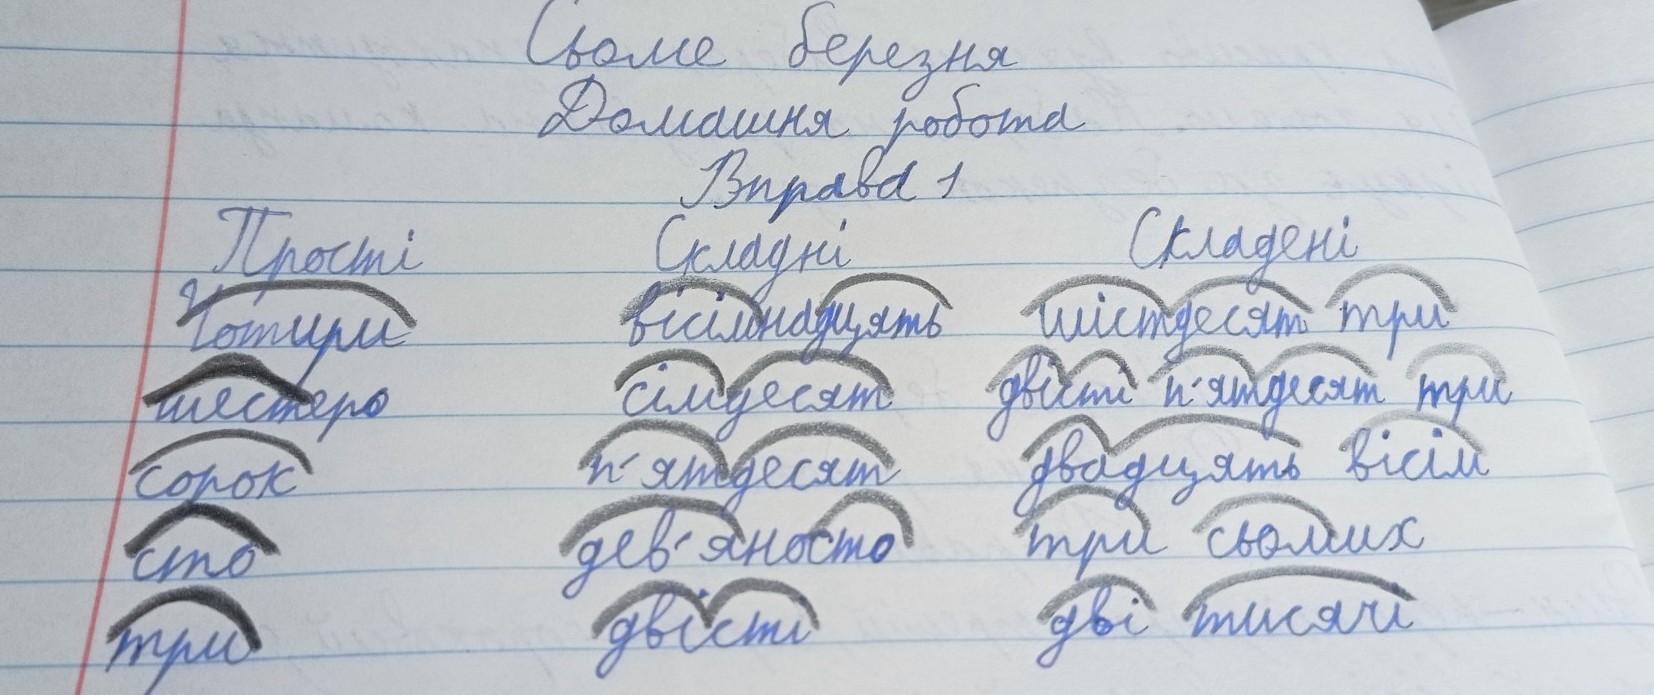 Сьоме березня
Домашня робота
Вправа 1
Прості Складні Складені
Чотири вісімнадцять шістдесят три
шестеро сімдесят двісті п'ятдесят три
сорок п'ятдесят двадцять вісім
сто дев'яносто три сьомих
три двісті дві тисячі